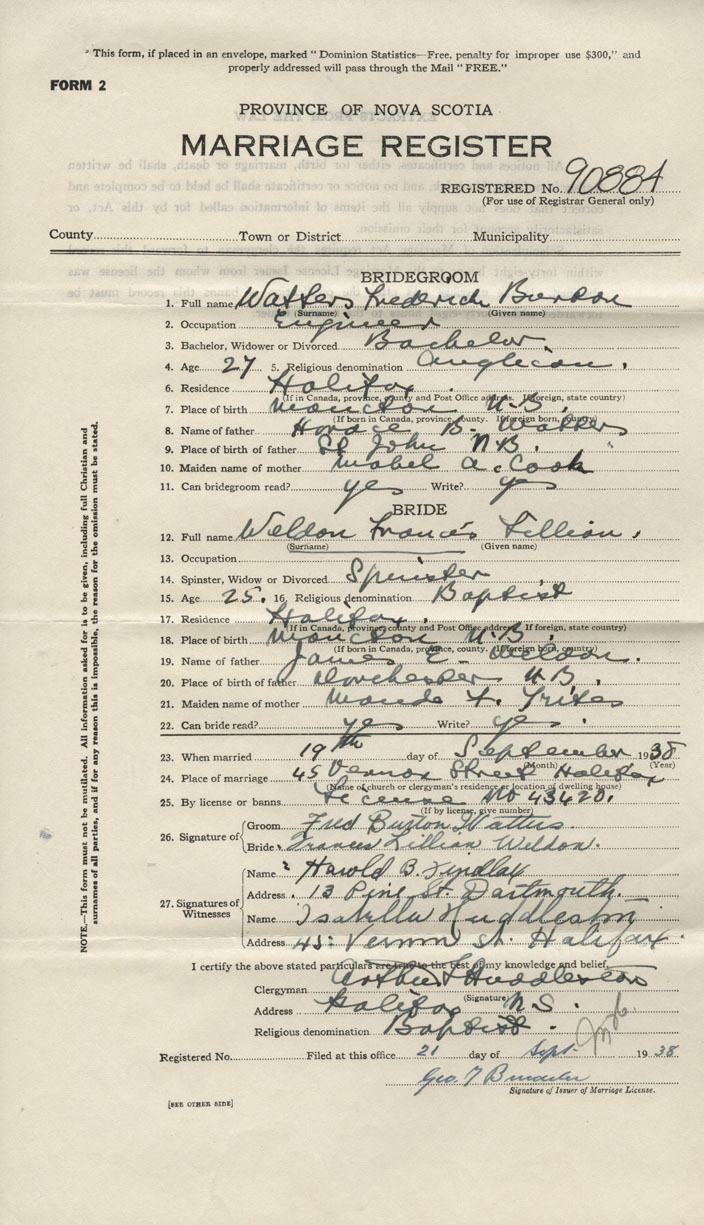 " This form, if placed in an envelope, marked " Dominion Statistics—Free, penalty for improper use $300," and
properly addressed will pass through the Mail " FREE."
FORM 2
PROVINCE OF NOVA SCOTIA
MARRIAGE REGISTER
REGISTERED No. 90884
(For use of Registrar General only)
County Town or District Municipality
BRIDEGROOM
1. Full name Watters Frederick Burton
(Surname) (Given name)
2. Occupation Engineer
3. Bachelor, Widower or Divorced Bachelor.
4. Age 27 5. Religious denomination Anglican.
6. Residence Halifax.
(If in Canada, province, county and Post Office address. If foreign, state country)
7. Place of birth Moncton N.B.
(If born in Canada, province, county. If foreign born, country)
8. Name of father Horace B. Watters
9. Place of birth of father St John N.B.
10. Maiden name of mother Mabel A. Cook
11. Can bridegroom read? yes Write? yes
BRIDE
12. Full name Weldon Francis Lillian.
(Surname) (Given name)
13. Occupation
14. Spinster, Widow or Divorced Spinster
15. Age 25. 16. Religious denomination Baptist
17. Residence Halifax.
(If in Canada, province, county and Post Office address. If foreign, state country)
18. Place of birth Moncton N.B.
(If born in Canada, province, county. If foreign born, country)
19. Name of father James E. Weldon.
20. Place of birth of father Dorchester N.B.
21. Maiden name of mother Trites
22. Can bride read? yes Write? yes.
23. When married 19th day of September 1938
(Month) (Year)
24. Place of marriage 45 Vernon Street Halifax
(Name of church or clergyman's residence or location of dwelling house)
25. By license or banns License No 43420.
(If by license, give number)
26. Signature of
Groom Fred Burton Watters.
Bride Frances Lillian Weldon.
27. Signatures of Witnesses
Name Harold B. Findlay
Address 13 Pine St. Dartmouth.
Name Isabella Huddleston
Address 45 Vernon St. Halifax.
I certify the above stated particulars are true to the best of my knowledge and belief.
Clergyman Huddleston
(Signature)
Address Halifax N.S.
Religious denomination Baptist.
Registered No. Filed at this office 21 day of Sept. 1938
Geo. T
Signature of Issuer of Marriage License.
[SEE OTHER SIDE]
NOTE.—This form must not be mutilated. All information asked for is to be given, including full Christian and
surnames of all parties, and if for any reason this is impossible, the reason for the omission must be stated.